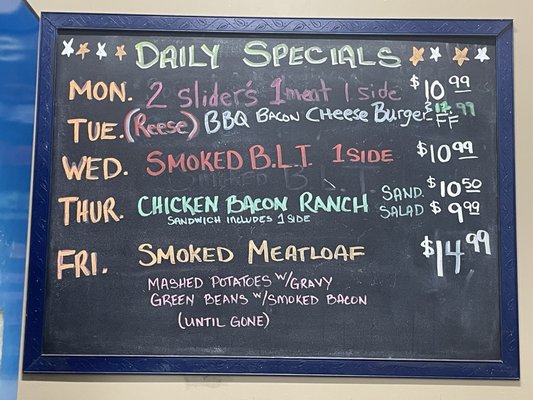 DAILY SPECIALS
MON. 2 slider's 1 meat 1 side $10.99
TUE. (Reese) BBQ BACON CHEESE BURGER & FF
WED. SMOKED B.L.T. 1 SIDE $10.99
THUR. CHICKEN BACON RANCH SAND. $10.50
SANDWICH INCLUDES 1 SIDE SALAD $9.99
FRI. SMOKED MEATLOAF $14.99
MASHED POTATOES W/GRAVY
GREEN BEANS W/SMOKED BACON
(UNTIL GONE)